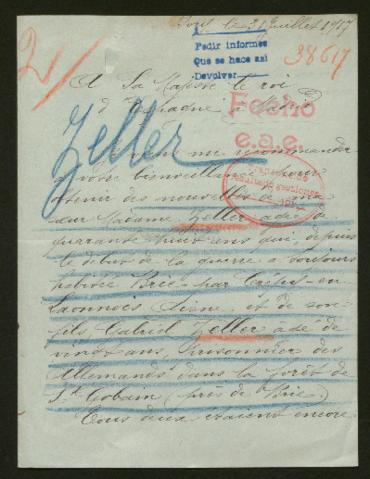 le 31 juillet 1917
Pedir informes
Que se hace así
Devolver
38617
2/
A Sa Majesté le roi
d'Espagne à Madrid
Fecho
e.a.e.
Zeller
me recommander
à votre bienveillance pour
obtenir des nouvelles de ma
sœur Madame Zeller âgée de
quarante huit ans qui, depuis
le début de la guerre a toujours
habitée Brie par Crépy-en-
Laonnois Aisne et de son
fils Gabriel Zeller âgé de
vingt ans, prisonnier des
Allemands dans la forêt de
St Gobain (près de Brie)
Tous deux étaient encore